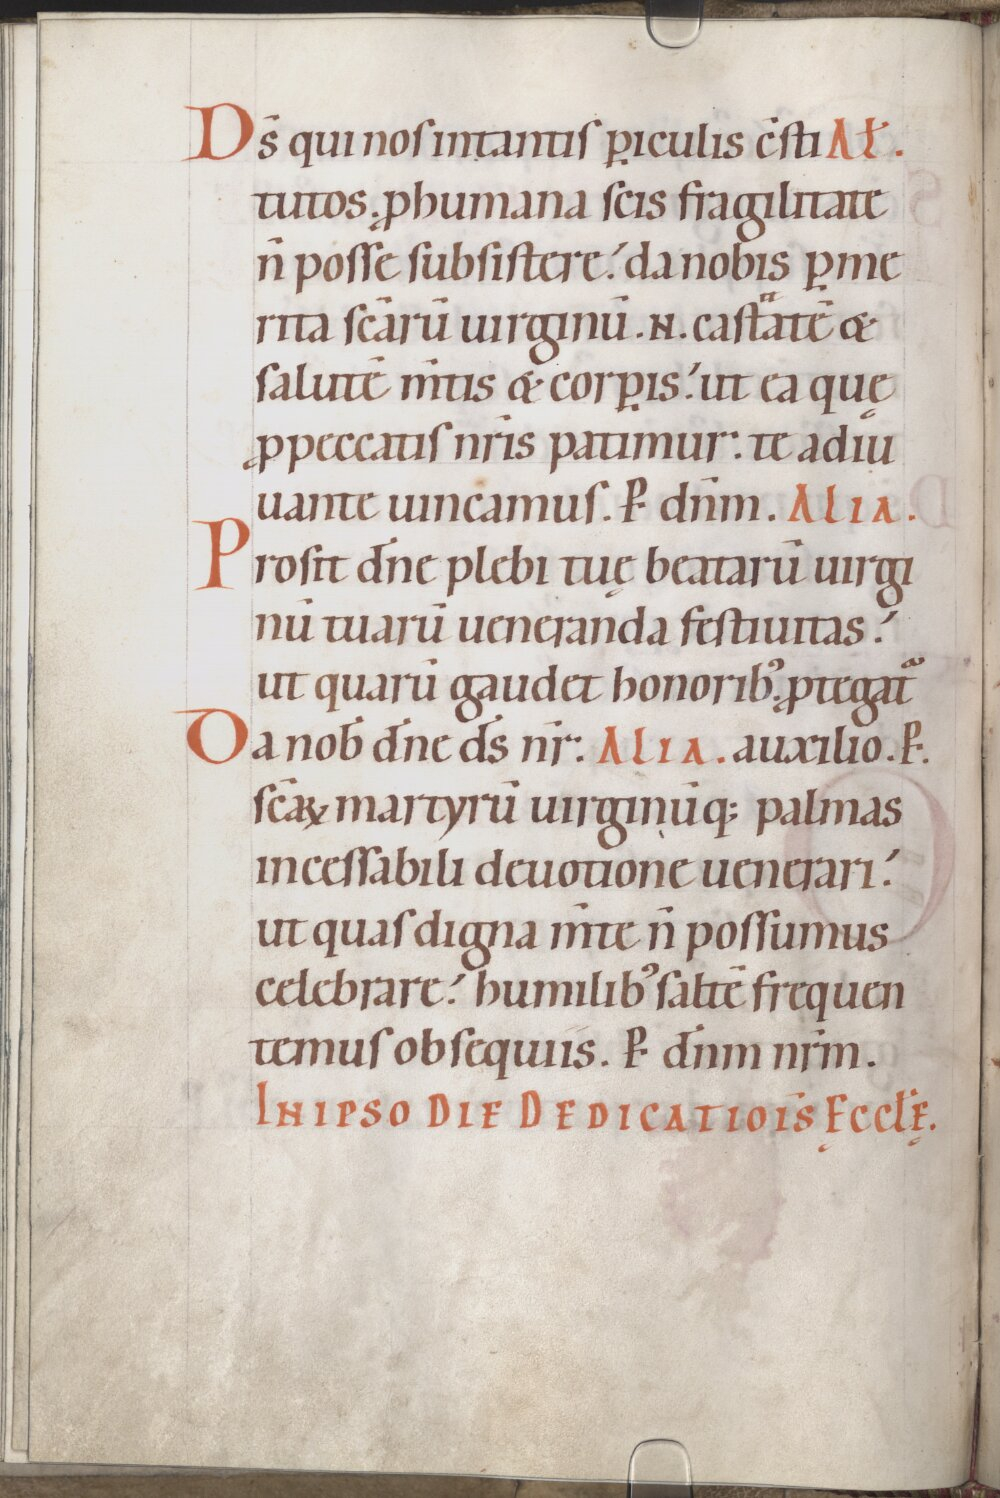 Ds̄ qui nos in tantis ꝑiculis c̄sti Al̄.
tutos. ꝓ humana scis fragilitate
n̄ posse subsistere? da nobis ꝑ me
rita scārū uirginū. N. castᵃtē &
salutē m̄tis & corꝑis? ut ea quę
ꝓ peccatis nr̄is patimur: te adiu
uante uincamus. P̄. dn̄m. Alia.
Prosit dn̄e plebi tuę beatarū uirgi
nū tuarū ueneranda festiuitas?
ut quarū gaudet honorib; ꝓtegatᵃ
Da nob̄ dn̄e ds̄ nr̄: Alia. auxilio. P̄.
scāꝝ martyrū uirginūq; palmas
incessabili deuotione uenerari?
ut quas digna m̄te n̄ possumus
celebrare? humilib; saltē frequen
temus obsequiis. P̄. dn̄m nr̄m.
IN IPSO DIE DEDICATIOIS̄ ĘCCL̄Ę.